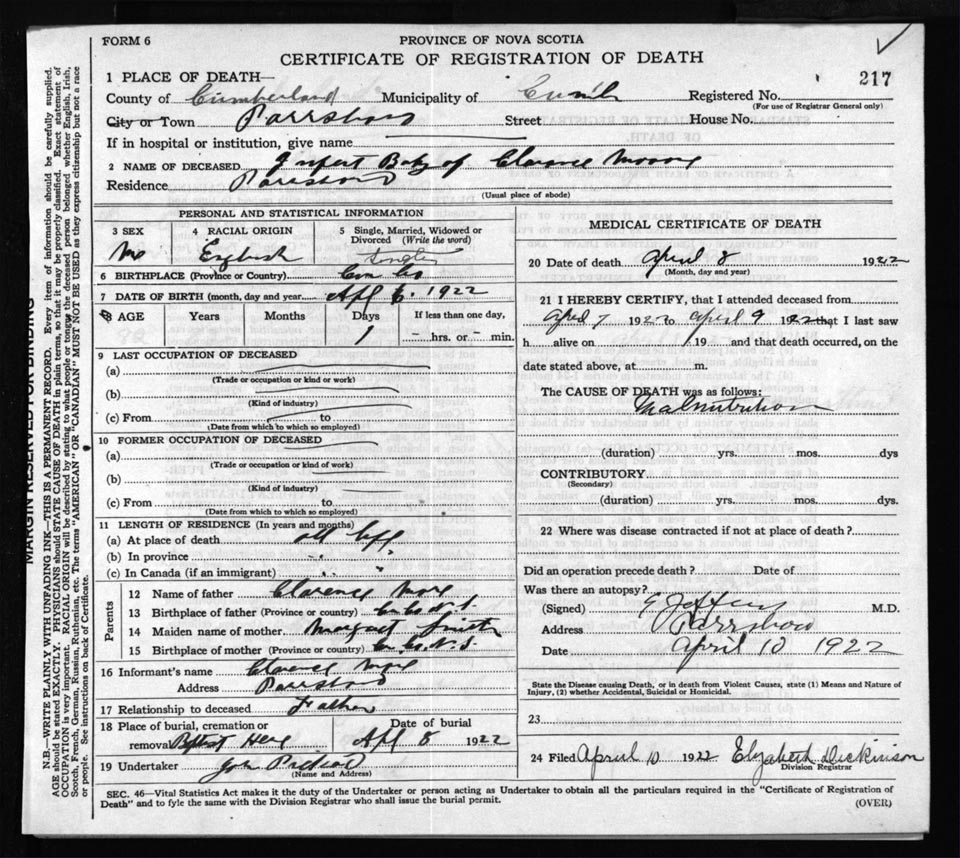 FORM 6
PROVINCE OF NOVA SCOTIA
CERTIFICATE OF REGISTRATION OF DEATH
217
1 PLACE OF DEATH—
County of Cumberland Municipality of Registered No.
(For use of Registrar General only)
City or Town Parrsboro Street House No.
If in hospital or institution, give name
2 NAME OF DECEASED, Infant Baby of Clarence Moore
Residence Parrsboro
(Usual place of abode)
PERSONAL AND STATISTICAL INFORMATION
3 SEX 4 RACIAL ORIGIN 5 Single, Married, Widowed or Divorced (Write the word)
English Single
6 BIRTHPLACE (Province or Country)
7 DATE OF BIRTH (month, day and year Apl 6 1922
8 AGE Years Months Days If less than one day,
1 hrs. or min.
9 LAST OCCUPATION OF DECEASED
(a)
(Trade or occupation or kind or work)
(b)
(Kind of industry)
(c) From to
(Date from which to which so employed)
10 FORMER OCCUPATION OF DECEASED
(a)
(Trade or occupation or kind of work)
(b)
(Kind of industry)
(c) From to
(Date from which to which so employed)
11 LENGTH OF RESIDENCE (In years and months)
(a) At place of death all life
(b) In province " "
(c) In Canada (if an immigrant) " "
Parents
12 Name of father Clarence More
13 Birthplace of father (Province or country) N.S.
14 Maiden name of mother Margaret Smith
15 Birthplace of mother (Province or country) N.S.
16 Informant's name Clarence More
Address Parrsboro
17 Relationship to deceased Father
18 Place of burial, cremation or removal Baptist Here Date of burial Apl 8 1922
19 Undertaker John
(Name and Address)
MEDICAL CERTIFICATE OF DEATH
20 Date of death April 8 1922
(Month, day and year)
21 I HEREBY CERTIFY, that I attended deceased from
April 7 1922 to April 9 1922 that I last saw
h alive on 19 and that death occurred, on the
date stated above, at m.
The CAUSE OF DEATH was as follows:
Malnutrition
(duration) yrs. mos. dys
CONTRIBUTORY
(Secondary)
(duration) yrs. mos. dys.
22 Where was disease contracted if not at place of death?
Did an operation precede death? Date of
Was there an autopsy?
(Signed) M.D.
Address Parrsboro
Date April 10 1922
State the Disease causing Death, or in death from Violent Causes, state (1) Means and Nature of Injury, (2) whether Accidental, Suicidal or Homicidal.
23
24 Filed April 10 1922 Elizabeth Dickinson
Division Registrar
SEC. 46—Vital Statistics Act makes it the duty of the Undertaker or person acting as Undertaker to obtain all the particulars required in the "Certificate of Registration of
Death" and to fyle the same with the Division Registrar who shall issue the burial permit.
(OVER)
MARGIN RESERVED FOR BINDING
N.B.—WRITE PLAINLY WITH UNFADING INK—THIS IS A PERMANENT RECORD. Every item of information should be carefully supplied.
AGE should be stated EXACTLY. PHYSICIANS should STATE CAUSE OF DEATH in plain terms, so that it may be properly classified. Exact statement of
OCCUPATION is very important. RACIAL ORIGIN will be described by stating to what people or tongue the deceased person belonged whether English, Irish,
Scotch, French, German, Russian, Ruthenian, etc. The terms "AMERICAN" OR "CANADIAN" MUST NOT BE USED as they express citizenship but not a race
or people. See instructions on back of Certificate.